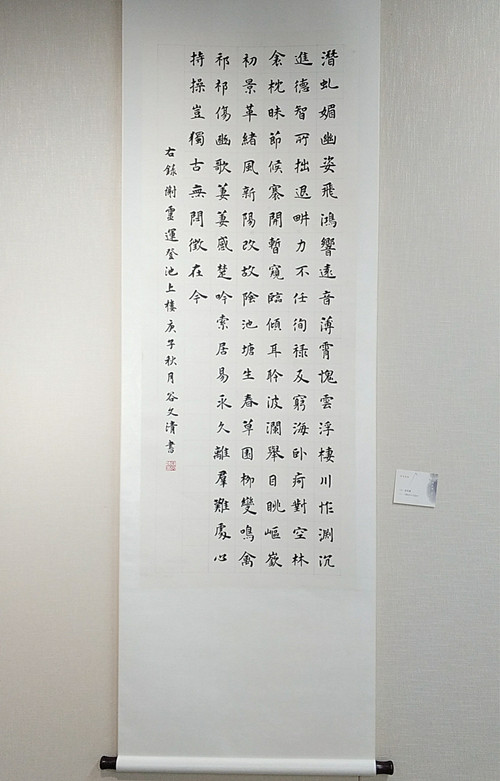 潛虬媚幽姿飛鴻響遠音薄霄愧雲浮棲川怍淵沉
進德智所拙退畊力不任徇祿反窮海卧痾對空林
衾枕昧節候褰開暫窺臨傾耳聆波瀾舉目眺嶇嶔
初景革緒風新陽改故陰池塘生春草園柳變鳴禽
祁祁傷幽歌萋萋感楚吟索居易永久離羣難處心
持操豈獨古無悶徵在今
右錄謝靈運登池上樓庚子秋月谷文清書